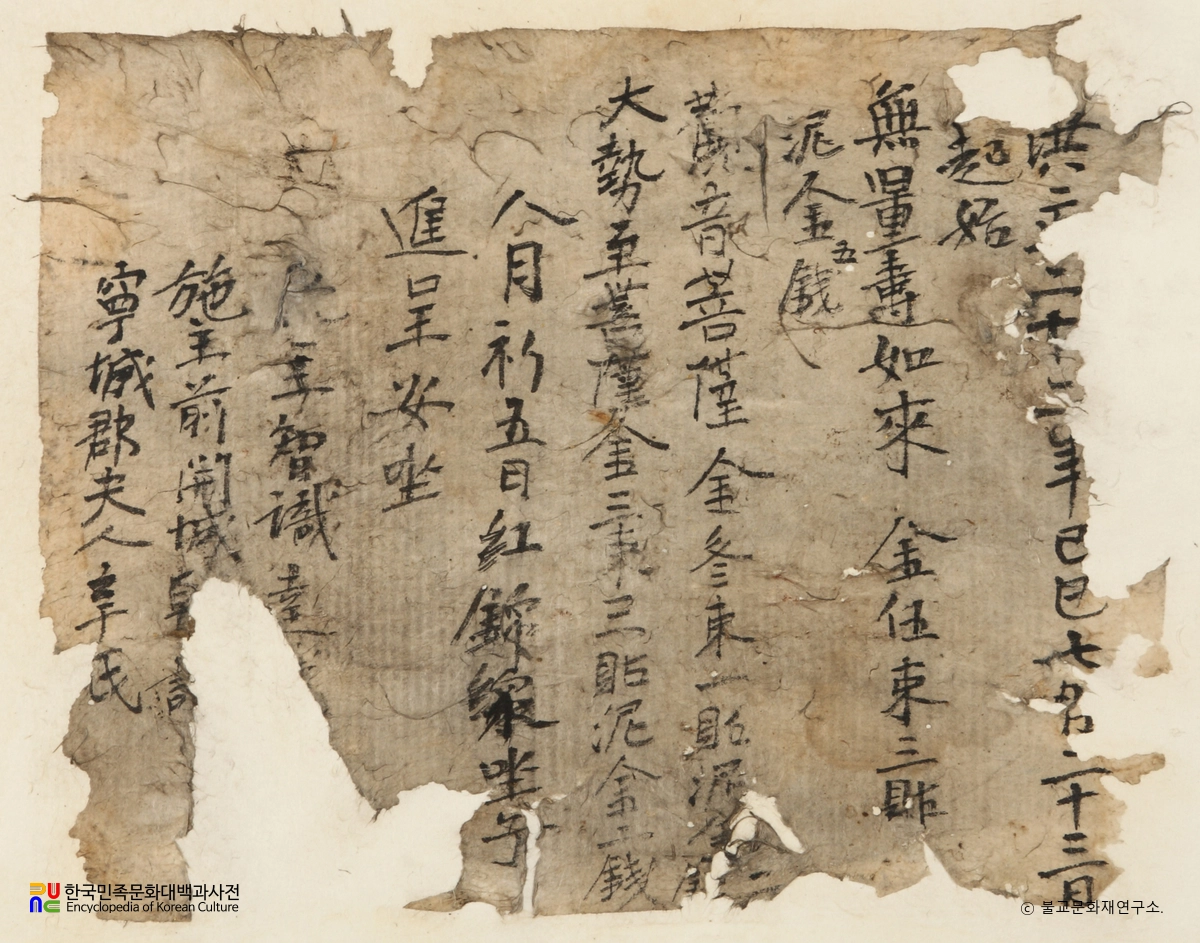 洪 二十二年 己巳 七月二十三日
起始
無量壽如來 金伍束三貼
泥金五錢
觀音菩薩 金冬束一貼泥金 二
大勢至菩薩金三束三貼泥金二錢
八月初五日紅錦線坐子
進呈安坐
主智識達
施主前開城
寧城郡夫人辛氏
한국민족문화대백과사전
Encyclopedia of Korean Culture
© 불교문화재연구소.